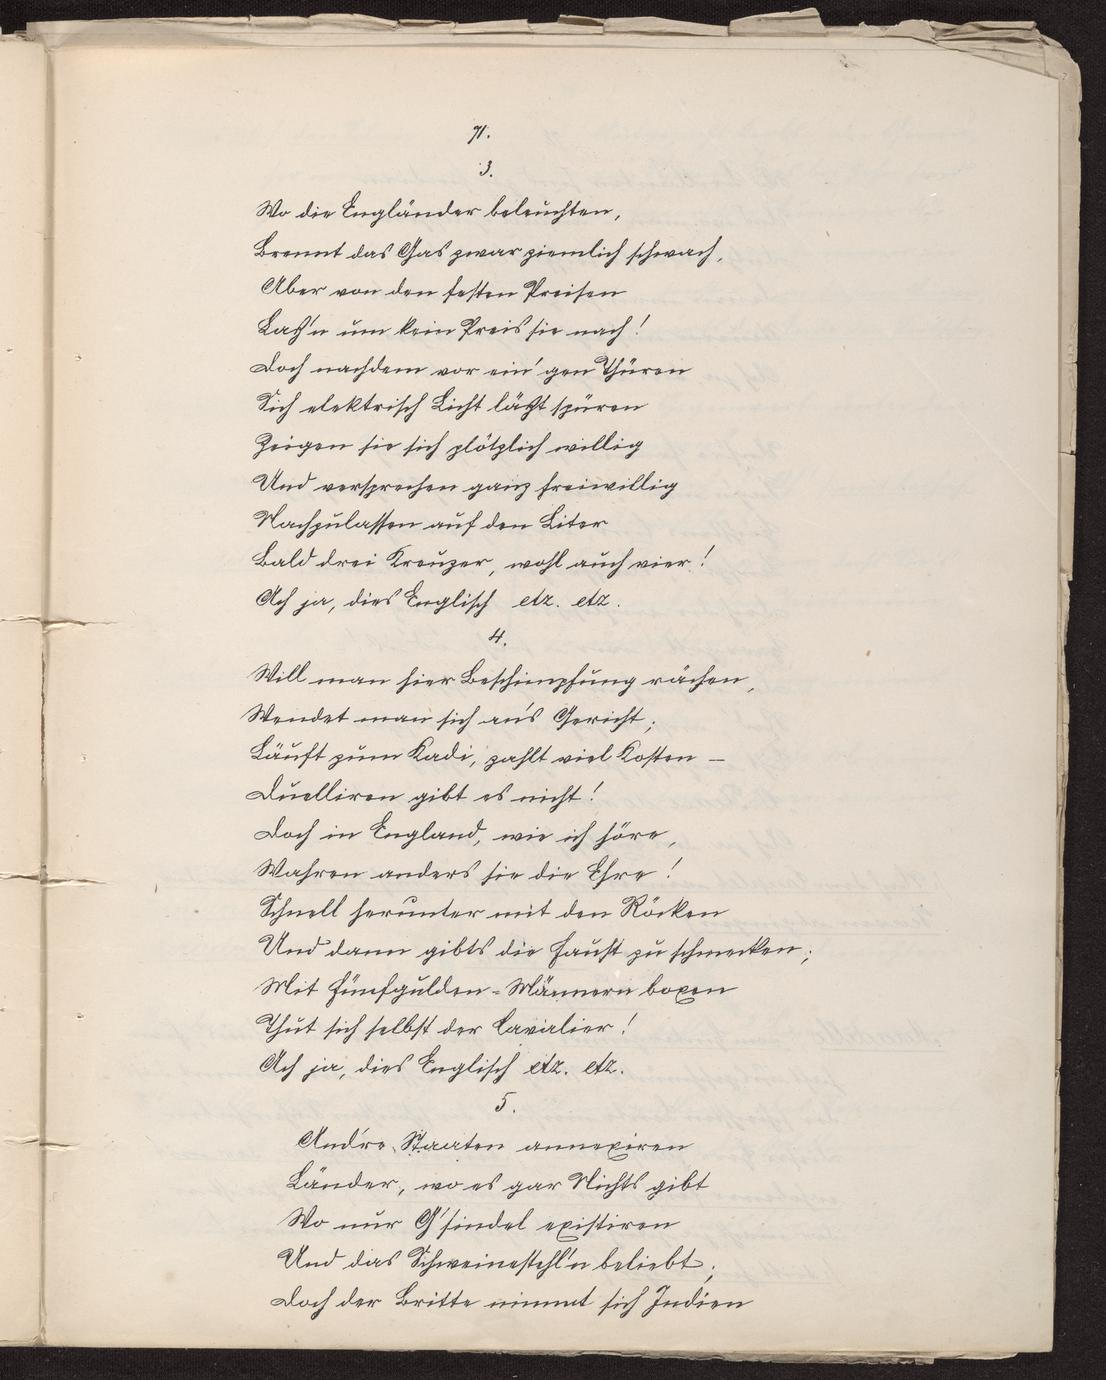 71.
3.
Wo die Engländer beleuchten,
Brennt das Gas zwar ziemlich schwach,
Aber von den festen Preisen
Laß'n um kein Preis sie nach!
Doch nachdem vor ein'gen Thüren
Sich elektrisch Licht läßt spüren
Zeigen sie sich plötzlich willig
Und versprechen ganz freiwillig
Nachzulassen auf den Liter
Bald drei Kreuzer, wohl auch vier!
Ach ja, dies Englisch etz. etz.
4.
Will man hier Beschimpfung rächen,
Wendet man sich an's Gericht;
Läuft zum Kadi, zahlt viel Kosten –
Duelliren gibt es nicht!
Doch in England, wie ich höre,
Wahren anders sie die Ehre!
Schnell herunter mit den Röcken
Und dann gibts die Faust zu schmecken;
Mit Fünfgulden-Männern boxen
Thut sich selbst der Cavalier!
Ach ja, dies Englisch etz. etz.
5.
And're Staaten annexiren
Länder, wo es gar Nichts gibt
Wo nur G'sindel existiren
Und das Schweinestehl'n beliebt;
Doch der Britte nimmt sich Indien